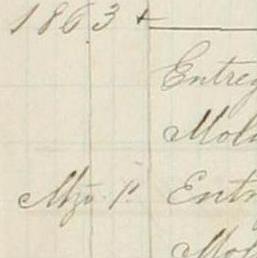 1863
Entreg
Moli
Mzo. 1º Entr
Mol